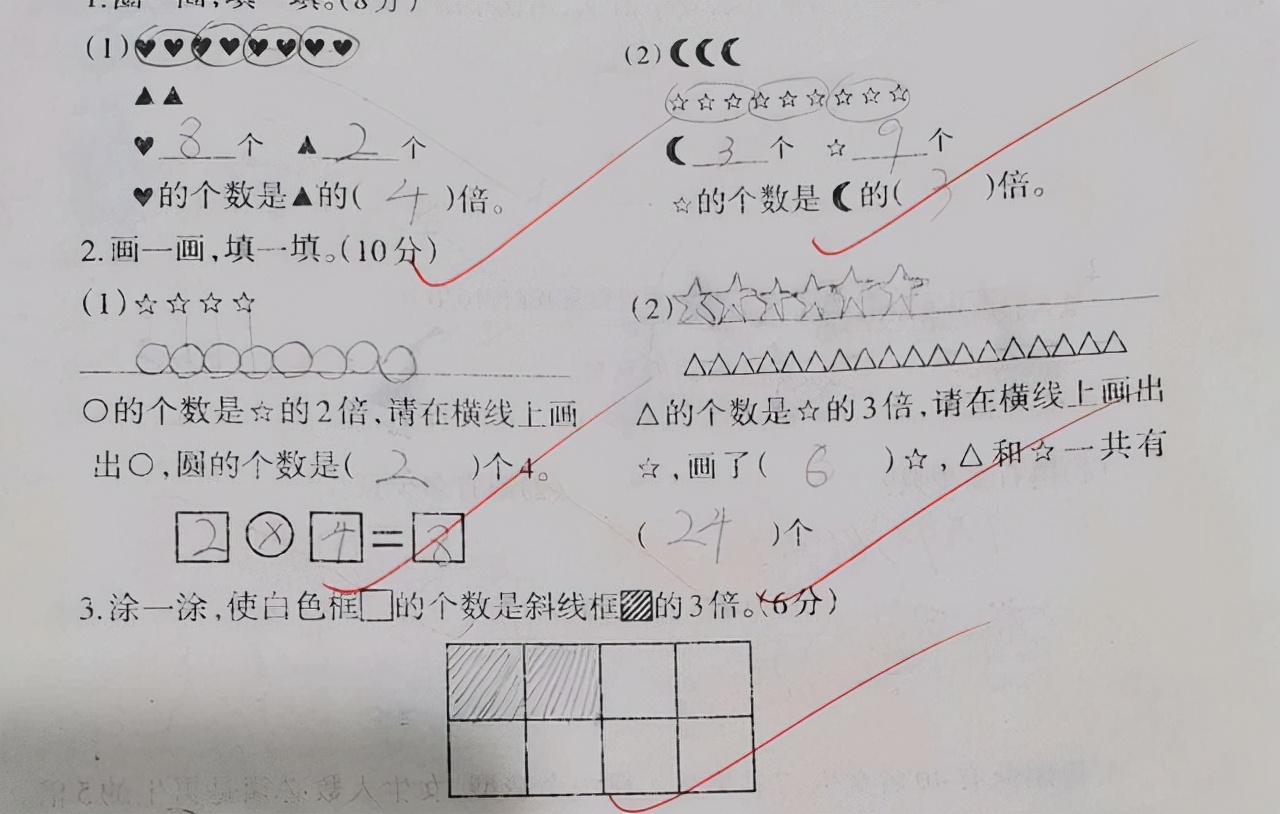 1.圈一圈,填一填。(8分)
(1)♥♥♥♥♥♥♥♥
▲▲
♥ 8 个 ▲ 2 个
♥的个数是▲的( 4 )倍。
(2)☾☾☾
☆☆☆☆☆☆☆☆☆
☾ 3 个 ☆ 9 个
☆的个数是☾的( 3 )倍。
2.画一画,填一填。(10分)
(1)☆☆☆☆
○○○○○○○○
○的个数是☆的2倍,请在横线上画
出○,圆的个数是( 2 )个4。
2×4=8
(2)☆☆☆☆☆☆
△△△△△△△△△△△△△△△△△△
△的个数是☆的3倍,请在横线上画出
☆,画了( 6 )☆,△和☆一共有
( 24 )个
3.涂一涂,使白色框□的个数是斜线框▨的3倍。(6分)